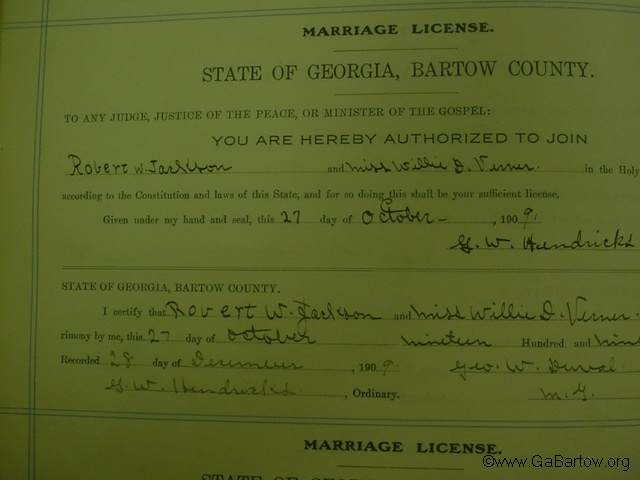 MARRIAGE LICENSE.
STATE OF GEORGIA, BARTOW COUNTY.
TO ANY JUDGE, JUSTICE OF THE PEACE, OR MINISTER OF THE GOSPEL:
YOU ARE HEREBY AUTHORIZED TO JOIN
Robert W. Jackson and Miss Willie D. Verner. in the Holy
according to the Constitution and laws of this State, and for so doing this shall be your sufficient license.
Given under my hand and seal, this 27 day of October , 1909.
G. W. Hendricks
STATE OF GEORGIA, BARTOW COUNTY.
I certify that Robert W. Jackson and Miss Willie D. Verner.
rimony by me, this 27 day of October nineteen Hundred and nine
Recorded 28 day of December , 1909. Geo. W. Duval
G. W. Hendricks , Ordinary. M. G.
MARRIAGE LICENSE.
STATE OF
©www.GaBartow.org